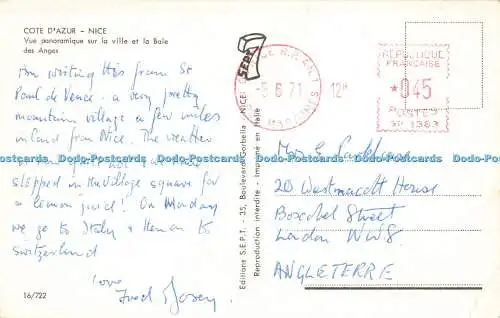 COTE D'AZUR - NICE
Vue panoramique sur la ville et la Baie
des Anges
Am writing this from St
Paul de Vence. a very pretty
mountain village a few miles
inland from Nice. The weather
Dodo-Postcards Dodo-Postcards Dodo-Postcards Dodo-Postcards Dodo-Postcards Dodo-Postcards
stopped in the village square for
a lemon juice! On Monday
we go to Italy & then on to
Switzerland
love
Fred
16/722
Editions S.E.P.T. - 35, Boulevard Gorbella - NICE
Reproduction interdite - Imprimé en Italie
7
SEPT
-5.6.71
12H
REPUBLIQUE
FRANCAISE
*045
POSTES
SP 1363
Mrs E
20 Westmacott House
Boscobel Street
London NW8.
ANGLETERRE